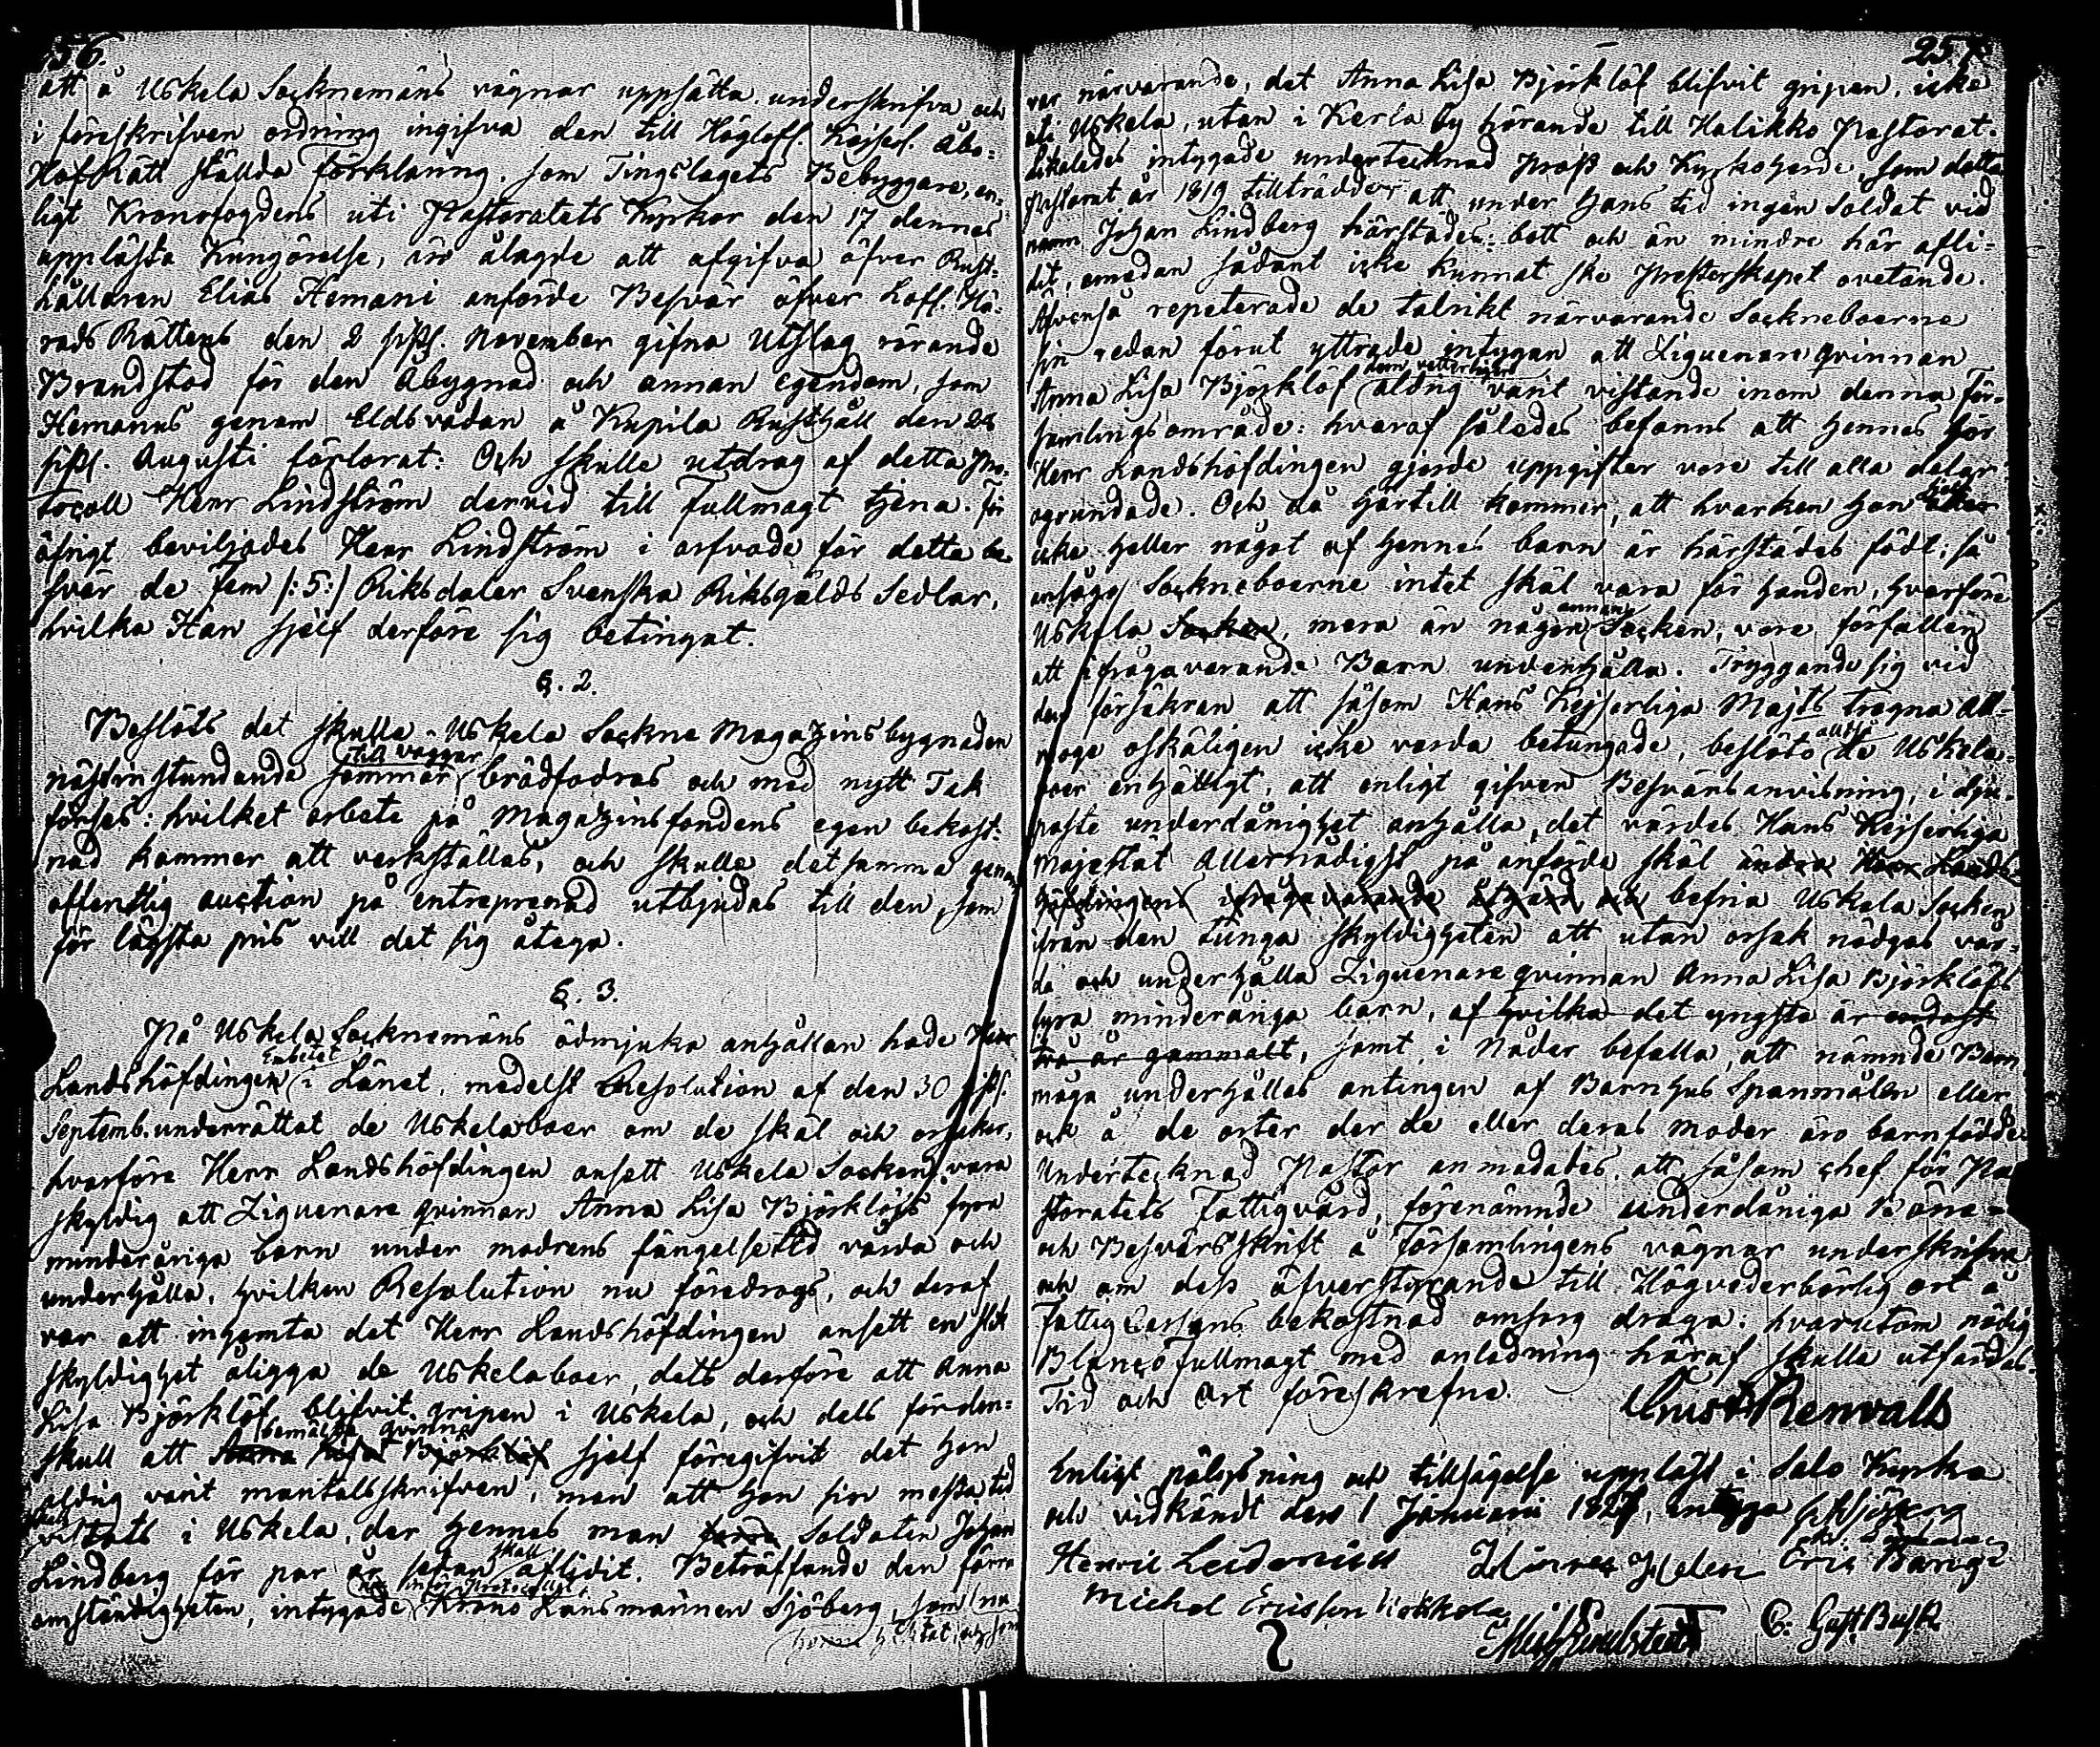 56.
att å Uskela Socknemäns vägnar uppsätta, underskrifva och
i föreskrifven ordning ingifva den till Höglofl. Kejserl. Åbo-
HofRätt ställda förklaring, som Tingslagets Bebyggare, en-
ligt Kronofogdens uti Pastoratets Kyrkor den 17 dennes
uppläste Kungörelse, äro ålagde att afgifva öfver Rust-
hållaren Elias Hemani anförde Besvär öfver Lofl. Hä-
rads Rättens den 2 sistl. November gifna Utslag rörande
Brandstod för den Åbygnad och annan egendom, som
Hemanus genom Eldsvådan å Kupila Rusthåll den
sistl. Augusti förlorat: Och skulle utdrag af detta Pro-
tocoll Herr Lindström dervid till Fullmagt tjena. För
öfrigt beviljades Herr Lindström i arfvode för detta be-
svär de Fem /:5:/ Riksdaler Svenska Riksgälds Sedlar,
hvilka Han sjelf derföre sig betingat.
§. 2.
Beslöts det skulle Uskela Sockne Magazins bygnaden
till väggar
nästinstundande sommar brädfodras och med nytt Tak
förses: hvilket arbete på Magazinsfondens egen bekost-
nad kommer att verkställas, och skulle detsamma genom
offentlig auction på entreprenad utbjudas till den, som
för lägsta pris vill det sig åtaga.
§. 3.
På Uskela Socknemäns ödmjuka anhållan hade Herr
Embetet
Landshöfdingen i Länet, medelst Resolution af den 30 sistl.
Septemb. underrättat de Uskelaboer om de skäl och orsaker,
hvarföre Herr Landshöfdingen ansett Uskela Socken vara
skyldig att Ziguenare qvinnan Anna Lisa Björklöfs fyra
minderåriga barn under modrens fängelsetid vårda och
underhålla, hvilken Resolution nu föredrogs, och deraf
var att inhemta det Herr Landshöfdingen ansett en slik
skyldighet åligga de Uskelaboer, dels derföre att Anna
Lisa Björklöf blifvit gripen i Uskela, och dels förden-
bemälda qvinna
skull att Anna Lisa Björklöf sjelf föregifvit det hon
aldrig varit mantalsskrifven, men att hon sin mesta tid
skall
vistats i Uskela, der hennes man Soldaten Johan
skall
Lindberg för par år sedan aflidit. Beträffande den förra
inför Protocollet
omständigheten, intygade Krono Länsmannen Sjöberg, som nu
257
var närvarande, det Anna Lisa Björklöf blifvit gripen, icke
uti Uskela, utan i Kerla by hörande till Halikko Pastorat.
Likaledes intygade undertecknad Prost och Kyrkoherde, som detta
Pastorat år 1819 tillträdde, att under Hans tid ingen Soldat vid
namn Johan Lindberg härstädes bott och än mindre här afli-
dit, emedan sådant icke kunnat ske Presterskapet ovetande.
Äfvenså repeterade de talrikt närvarande Sockneboerne
sin redan förut yttrade intygan att Ziguenare qvinnan
dem vetterligen
Anna Lisa Björklöf aldrig varit vistande inom denna För-
samlings område: hvaraf således befanns att hennes för
Herr Landshöfdingen gjorde uppgifter vore till alla delar
ogrundade. Och då härtill kommer, att hvarken hon eller
icke heller något af hennes barn är härstädes födt; så
ansågo Sockneboerne intet skäl vara för handen, hvarföre
annan
Uskela Socken, mera än någon Socken, vore förfallen
att ifrågavarande Barn underhålla. Tryggande sig vid
den försäkran att såsom Hans Kejserliga Majts trogna All-
alltså
moge oskäligen icke varda betungade, beslöto de Uskela-
boer enhälligt, att enligt gifven Besvärsanvisning, i dju-
paste underdånighet anhålla, det värdes Hans Kejserliga
Majestät Allernådigst på anförde skäl ändra Herr Lands-
höfdingens ifrågavarande åtgärd och befria Uskela Socken
ifrån den tunga skyldigheten att utan orsak nödgas vår-
da och underhålla Ziguenare qvinnan Anna Lisa Björklöfs
fyra minderåriga barn, af hvilka det yngsta är endast
två år gammalt, samt i Nåder befalla, att nämnde Barn
måga underhållas antingen af Barnhus Spanmålen eller
ock å de orter der de eller deras moder äro barnfödde.
Undertecknad Pastor anmodades, att såsom chef för Pa-
storatets Fattigvård, förenämnde underdåniga Böne-
och Besvärsskrift å Församlingens vägnar underskrifva
och om dess öfverstyrande till Högvederbörlig ort å
Fattig Cassans bekostnad omsorg draga: hvarutom nödig
Blanco fullmagt med anledning häraf skulle utfärdas.
Tid och Ort föreskrefne.
Ernst Renvall
Enligt pålysning och tillsägelse uppläst i Salo Kyrka
och vidkändt den 1 Januarii 1827, intyga
Henric Leidenius
Eric Bange
Michel Ericsson Kokkola
G: Gust. Busk